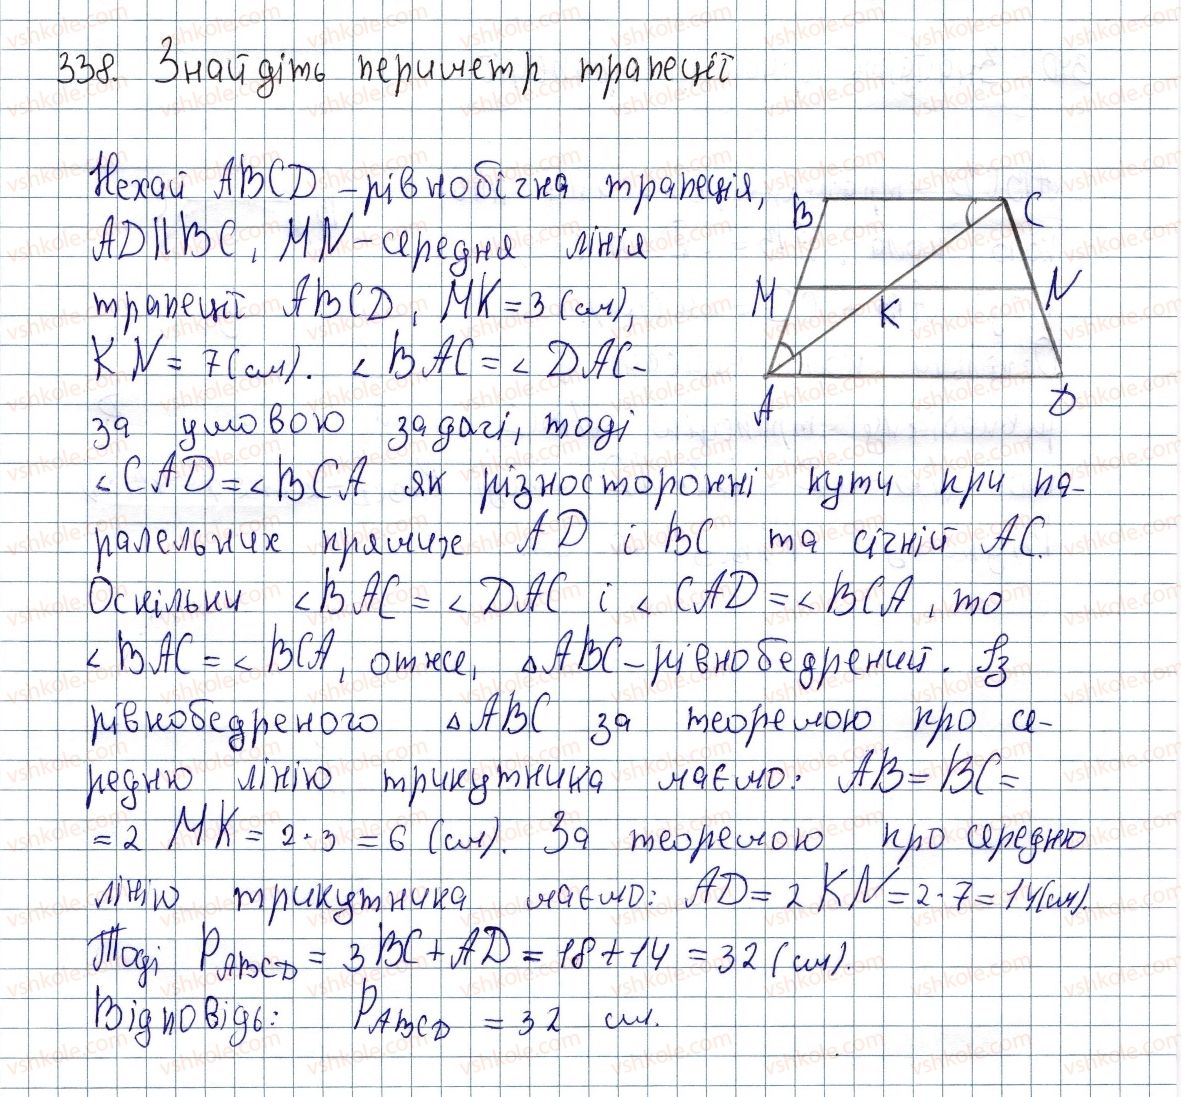 338. Знайдіть периметр трапеції
Нехай ABCD – рівнобічна трапеція,
AD||BC, MN – середня лінія
трапеції ABCD, MK = 3 (см),
KN = 7 (см). ∠BAC = ∠DAC –
за умовою задачі, тоді
∠CAD = ∠BCA як різносторонні кути при па-
ралельних прямих AD і BC та січній AC.
Оскільки ∠BAC = ∠DAC і ∠CAD = ∠BCA, то
∠BAC = ∠BCA, отже, △ABC – рівнобедрений. Із
рівнобедреного △ABC за теоремою про се-
редню лінію трикутника маємо: AB = BC =
= 2 MK = 2·3 = 6 (см). За теоремою про середню
лінію трикутника маємо: AD = 2 KN = 2·7 = 14(см).
Тоді P_ABCD = 3 BC + AD = 18 + 14 = 32 (см).
Відповідь: P_ABCD = 32 см.
B C
M K N
A D
vshkole.com